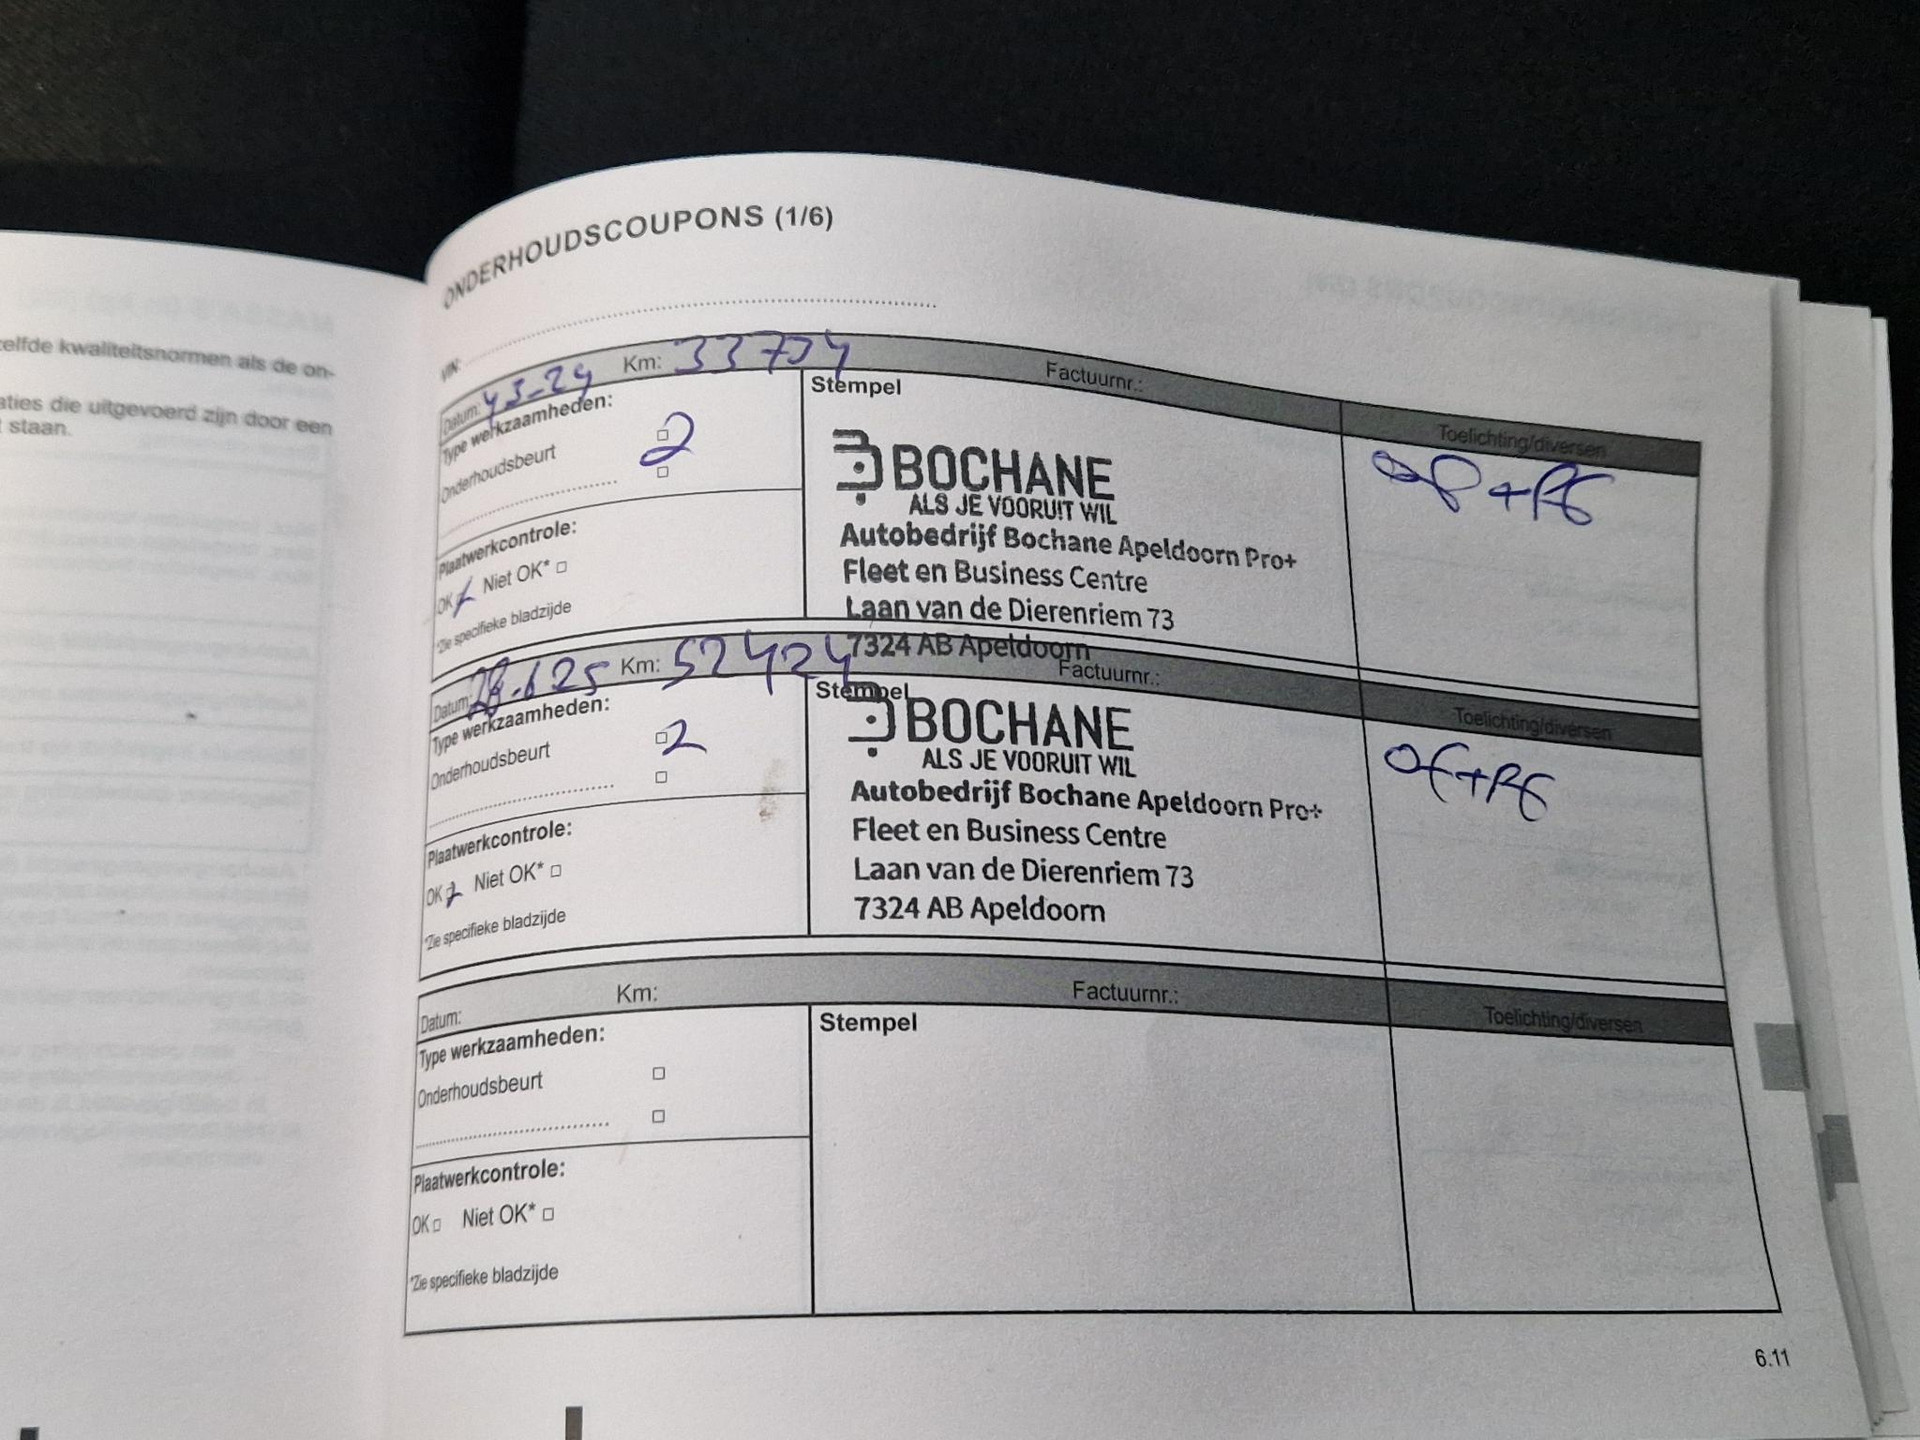 zelfde kwaliteitsnormen als de on-
aties die uitgevoerd zijn door een
t staan.
ONDERHOUDSCOUPONS (1/6)
VIN:
Datum: 4 3-24 Km: 33704 Factuurnr.:
Type werkzaamheden:
Onderhoudsbeurt 2
Plaatwerkcontrole:
OK Niet OK*
*Zie specifieke bladzijde
Stempel
BOCHANE
ALS JE VOORUIT WIL
Autobedrijf Bochane Apeldoorn Pro+
Fleet en Business Centre
Laan van de Dierenriem 73
7324 AB Apeldoorn
Toelichting/diversen
Datum: 28-625 Km: 52424 Factuurnr.:
Type werkzaamheden:
Onderhoudsbeurt 2
Plaatwerkcontrole:
OK Niet OK*
*Zie specifieke bladzijde
Stempel
BOCHANE
ALS JE VOORUIT WIL
Autobedrijf Bochane Apeldoorn Pro+
Fleet en Business Centre
Laan van de Dierenriem 73
7324 AB Apeldoorn
Toelichting/diversen
Datum: Km: Factuurnr.:
Type werkzaamheden:
Onderhoudsbeurt
Plaatwerkcontrole:
OK Niet OK*
*Zie specifieke bladzijde
Stempel
Toelichting/diversen
6.11